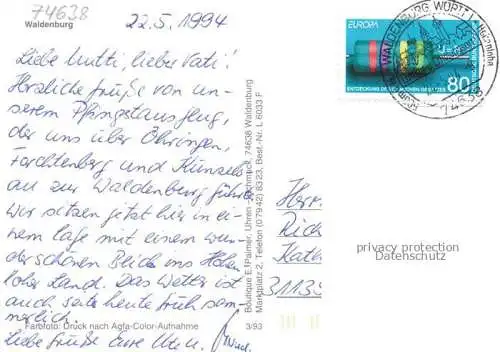 74638
Waldenburg
22.5.1994
Liebe Mutti, lieber Vati!
Herzliche Grüße von un-
serem Pfingstausflug,
der uns über Öhringen,
Forchtenberg und Künzels
au zur Waldenburg führte
wir sitzen jetzt hier in ei-
nem Café mit einem wun-
derschönen Blick ins Hohen
loher Land. Das Wetter ist
auch seit heute früh som-
merlich.
Farbfoto: Druck nach Agfa-Color-Aufnahme
3/93
Liebe Grüße Eure Ute u.
Boutique E. Palmer, Uhren - Schmuck, 74638 Waldenburg
Marktplatz 2, Telefon (07942) 8323, Best.-Nr. L 6033 F
EUROPA
80
WALDENBURG, WÜRTT
74638
Herr
Rich
Kath
3113
privacy protection
Datenschutz